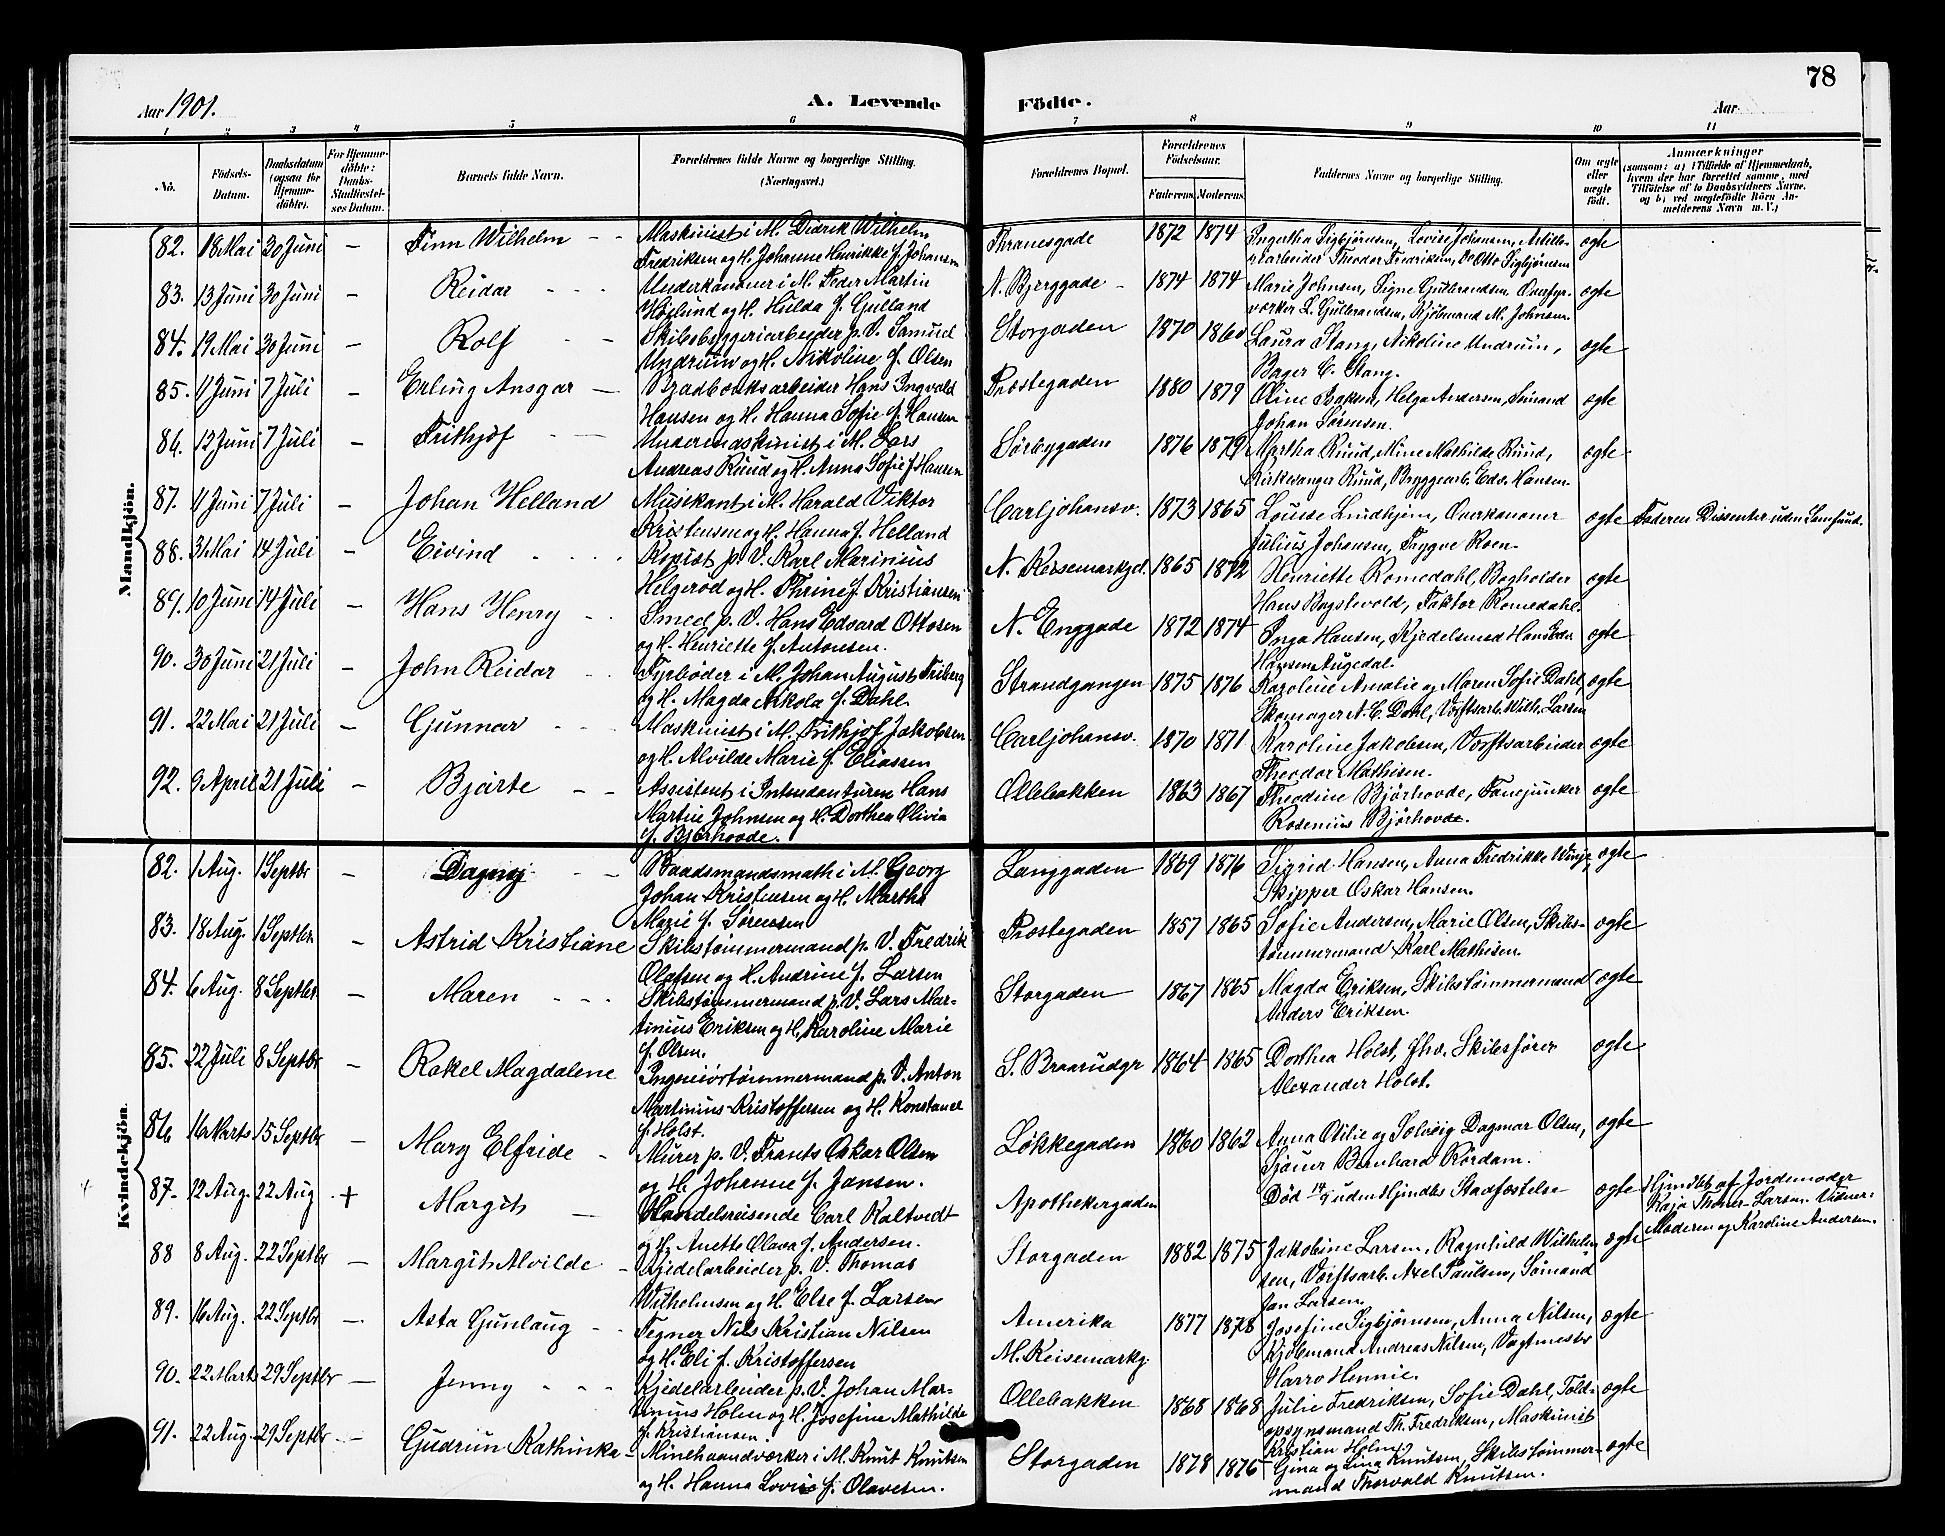 78
Aar 1901. A. Levende Födte. Aar
1 2 3 4 5 6 7 8 9 10 11
No. Födsels-Datum. Daabsdatum (ogsaa for Hjemme-döbte). For Hjemme-döbte: Daabs-Stadfæstel-ses Datum. Barnets fulde Navn. Forældrenes fulde Navne og borgerlige Stilling. (Næringsvei.) Forældrenes Bopæl. Forældrenes Födselsaar. Faderens Moderens Faddernes Navne og borgerlige Stilling. Om ægte eller uægte födt. Anmærkninger (saasom: a) i Tilfælde af Hjemmedaab, hvem der har forrettet samme, med Tilföielse af to Daabsvidners Navne, og b) ved uægtefödte Börn Anmelderens Navn m. V.)
Mandkjön.
82. 18 Mai 30 Juni — Finn Wilhelm — Maskinist i M. Didrik Wilhelm Thranesgade 1872 1874 Ingertha Sigbjörnsen, Lovise Johansen, Artille- ægte
Fredriksen og H. Johanne Henrikke f. Johansen riarbeider Theodor Fredriksen, Do Otto Sigbjörnsen
83. 13 Juni 30 Juni — Reidar — Underkanoner i M. Peder Martin N. Bjerggade 1874 1874 Marie Johnsen, Signe Gulbrandsen, Overfyr- ægte
Höilund og H. Hulda f. Gulland værker L. Gulbrandsen, Kjöbmand M. Johnsen.
84. 19 Mai 30 Juni — Rolf — Skibsbyggeriarbeider p. V. Samuel Storgaden 1870 1860 Laura Stang, Nikoline Undrum, ægte
Undrum og H. Nikoline f. Olsen Bager C. Stang.
85. 11 Juni 7 Juli — Erling Ansgar — Hans Ingvald Præstegaden 1880 1879 Oline Isaksen, Helga Andersen, Sömand ægte
Hansen og H. Hanna Sofie f. Hansen Johan Sörensen.
86. 12 Juni 7 Juli — Frithjof — Undermaskinist i M. Lars Sörbygaden 1876 1879 Myrtha Ruud, Mine Mathilde Ruud, ægte
Andreas Ruud og H. Anna Sofie f. Hansen Kirkesanger Ruud, Bryggearb. Edv. Hansen.
87. 11 Juni 7 Juli — Johan Helland Musikant i M. Harald Viktor Carljohansv. 1873 1865 Louise Lindhjem, Overkanoner ægte Faderen Dissenter uden Samfund.
Kristensen og H. Hanna f. Helland Julius Johansen, Trygve Roen.
88. 31 Mai 14 Juli — Eivind — Kopist p. V. Karl Marinius N. Keisemarkgd. 1865 1872 Henriette Romedahl, Bogholder ægte
Helgeröd og H. Thrine f. Kristiansen Hans Bogstvold, Faktor Romedahl.
89. 10 Juni 14 Juli — Hans Henry — Smed p. V. Hans Edvard Ottosen N. Enggade 1872 1874 Inga Hansen, Kjedelsmed Hans Edv. ægte
og H. Henriette f. Antonsen. Hansen, Augedal.
90. 30 Juni 21 Juli — John Reidar — Fyrböder i M. Johan August Friberg Strandgangen 1875 1876 Karoline Amalie og Maren Sofie Dahl, ægte
og H. Magda Nikola f. Dahl. Skomager N. C. Dahl, Værftsarb. Wilh. Larsen
91. 22 Mai 21 Juli — Gunnar — Maskinist i M. Frithjof Jakobsen Carljohansv. 1870 1871 Karoline Jakobsen, Værftsarbeider ægte
og H. Alvilde Marie f. Eliassen Theodor Mathisen.
92. 9 April 21 Juli — Bjarte — Assistent i Intendanturen Hans Ollebakken 1863 1867 Theodine Bjørhovde, Fanejunker ægte
Martin Johnsen og H. Dorthea Olivia Rosenius Bjørhovde.
f. Bjørhovde.
Kvindekjön.
82. 1 Aug. 1 Septbr — Dagny — Baadsmandsmath i M. Georg Langgaden 1869 1876 Sigrid Hansen, Anna Fredrikke Winje, ægte
Johan Kristensen og H. Martha Skipper Oskar Hansen.
Marie f. Sörensen
83. 18 Aug. 1 Septbr. — Astrid Kristiane Skibstömmermand p. V. Fredrik Præstegaden 1857 1865 Sofie Andersen, Marie Olsen, Skibs- ægte
Olafsen og H. Andrine f. Larsen tömmermand Karl Mathisen.
84. 6 Aug. 8 Septbr. — Maren — Skibstömmermand p. V. Lars Mar- Storgaden 1867 1865 Magda Eriksen, Skibstömmermand ægte
tinius Eriksen og H. Karoline Marie Anders Eriksen.
f. Olsen.
85. 22 Juli 8 Septbr — Rakel Magdalene Ingeniörtömmermand p. V. Anton S. Braarudgr 1864 1865 Dorthea Holst, fhv. Skibsförer ægte
Martinius Kristoffersen og H. Konstance Alexander Holst.
f. Holst.
86 16 Marts 15 Septbr — Mary Elfride — Murer p. V. Frants Oskar Olsen Lökkegaden 1860 1862 Anna Otilie og Solveig Dagmar Olsen, ægte
og H. Johanne f. Jansen. Bernhard Rördam.
87. 12 Aug. 22 Aug + Margit — Handelsreisende Carl Kaltvedt Apothekergaden Död uden Hjmdbs Stadfæstelse ægte Hjmdbt af Jordemoder
og H. Anette Olava f. Andersen. Kaja Larsen. Vidner:
Moderen og Karoline Andersen.
88 8 Aug. 22 Septbr — Margit Alvilde — Kjedelarbeider p. V. Thomas Storgaden 1882 1875 Jakobine Larsen, Ragnhild Wilhelm- ægte
Wilhelmsen og H. Else f. Larsen sen, Værftsarb. Axel Paulsen, Sömand
Jan Larsen.
89. 16 Aug. 22 Septbr — Asta Gunlaug — Tegner Nils Kristian Nilsen Amerika 1877 1878 Josefine Sigbjörnsen, Anna Nilsen, ægte
og H. Eli f. Kristoffersen M. Keisemarkg. Kjöbmand Andreas Nilsen, Vagtmester
Harro Hennie.
90. 22 Marts 29 Septbr — Jenny — Kjedelarbeider p. V. Johan Mar- Ollebakken 1868 1868 Julie Fredriksen, Sofie Dahl, Told- ægte
tinius Holm og H. Josefine Mathilde opsynsmand Th. Fredriksen, Maskinist
f. Kristiansen. Kristian Holm.
91. 22 Aug. 29 Septbr — Gudrun Kathinka — Minehaandværker i M. Knut Knutsen Storgaden 1878 1876 Gina og Lina Knutsen, Skibstömmer- ægte
og H. Hanna Lovise f. Olavesen. mand Thorvald Knutsen.